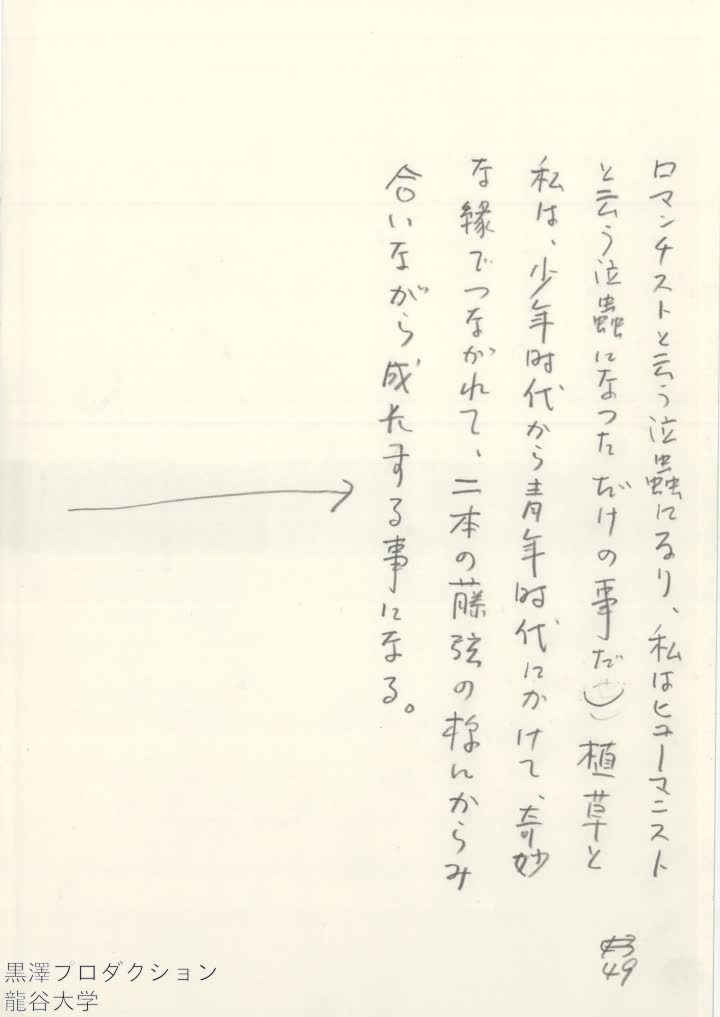 ロマンチストと云う泣蟲になり、私はヒューマニスト
と云う泣蟲になつただけの事だ)植草と
私は、少年时代から青年时代にかけて、奇妙
な縁でつながれて、二本の藤弦の様にからみ
合いながら成長する事になる。
49
黒澤プロダクション
龍谷大学